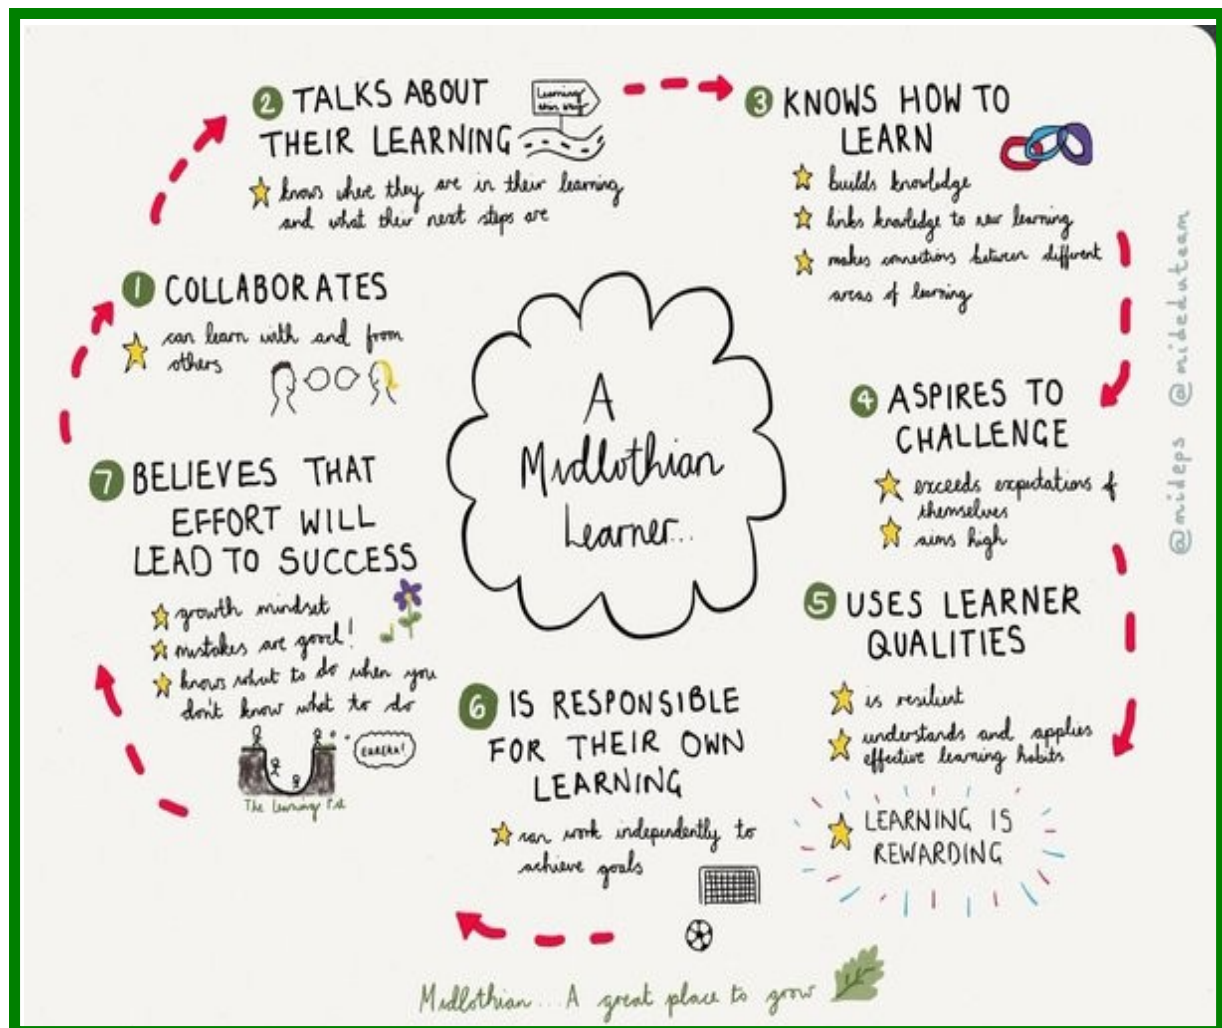 A
Midlothian
Learner...
1 COLLABORATES
can learn with and from
others
2 TALKS ABOUT
THEIR LEARNING
Learning
this way
knows where they are in their learning
and what their next steps are
3 KNOWS HOW TO
LEARN
builds knowledge
links knowledge to new learning
makes connections between different
areas of learning
4 ASPIRES TO
CHALLENGE
exceeds expectations of
themselves
aims high
5 USES LEARNER
QUALITIES
is resilient
understands and applies
effective learning habits
LEARNING IS
REWARDING
6 IS RESPONSIBLE
FOR THEIR OWN
LEARNING
can work independently to
achieve goals
7 BELIEVES THAT
EFFORT WILL
LEAD TO SUCCESS
growth mindset
mistakes are good!
knows what to do when you
don't know what to do
EUREKA!
The Learning Pit
Midlothian... A great place to grow
@mideps @mideduteam